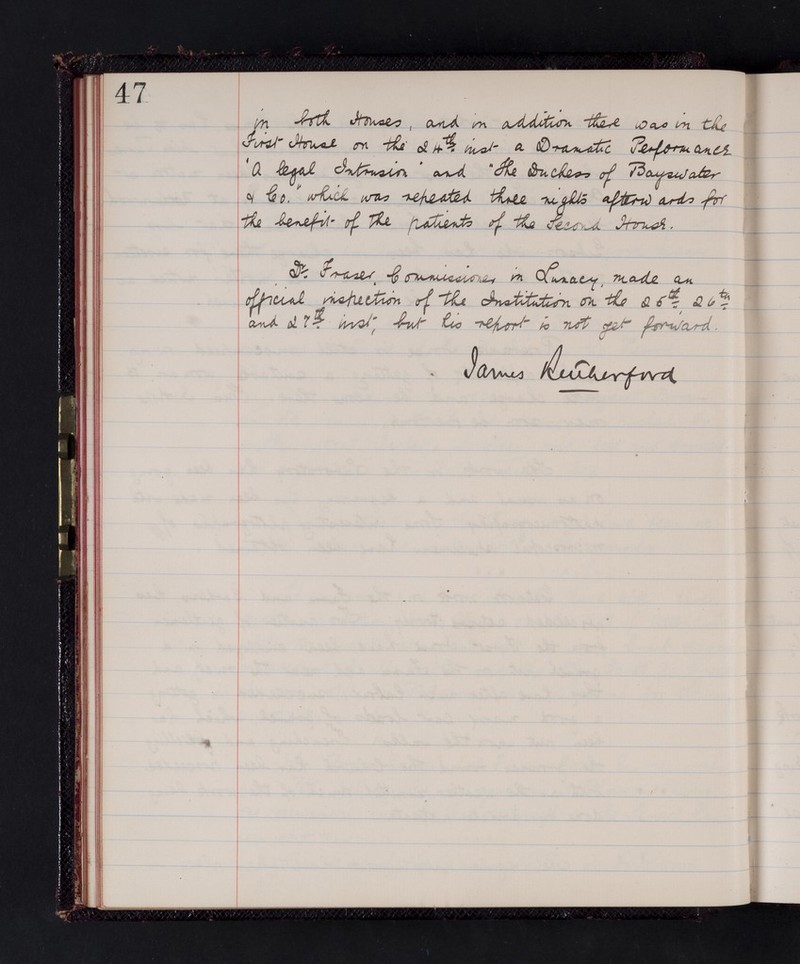 47
in both Houses, and in addition there was in the
First House on the 24th inst a Dramatic Performance
"A legal Intrusion" and "The Duchess of Bayswater
& Co." which was repeated three nights afterwards for
the benefit of the patients of the Second House.
Dr. Fraser, Commissioner in Lunacy, made an
official inspection of the Institution on the 25th, 26th
and 27th inst, but his report is not yet forward.
James Rutherford